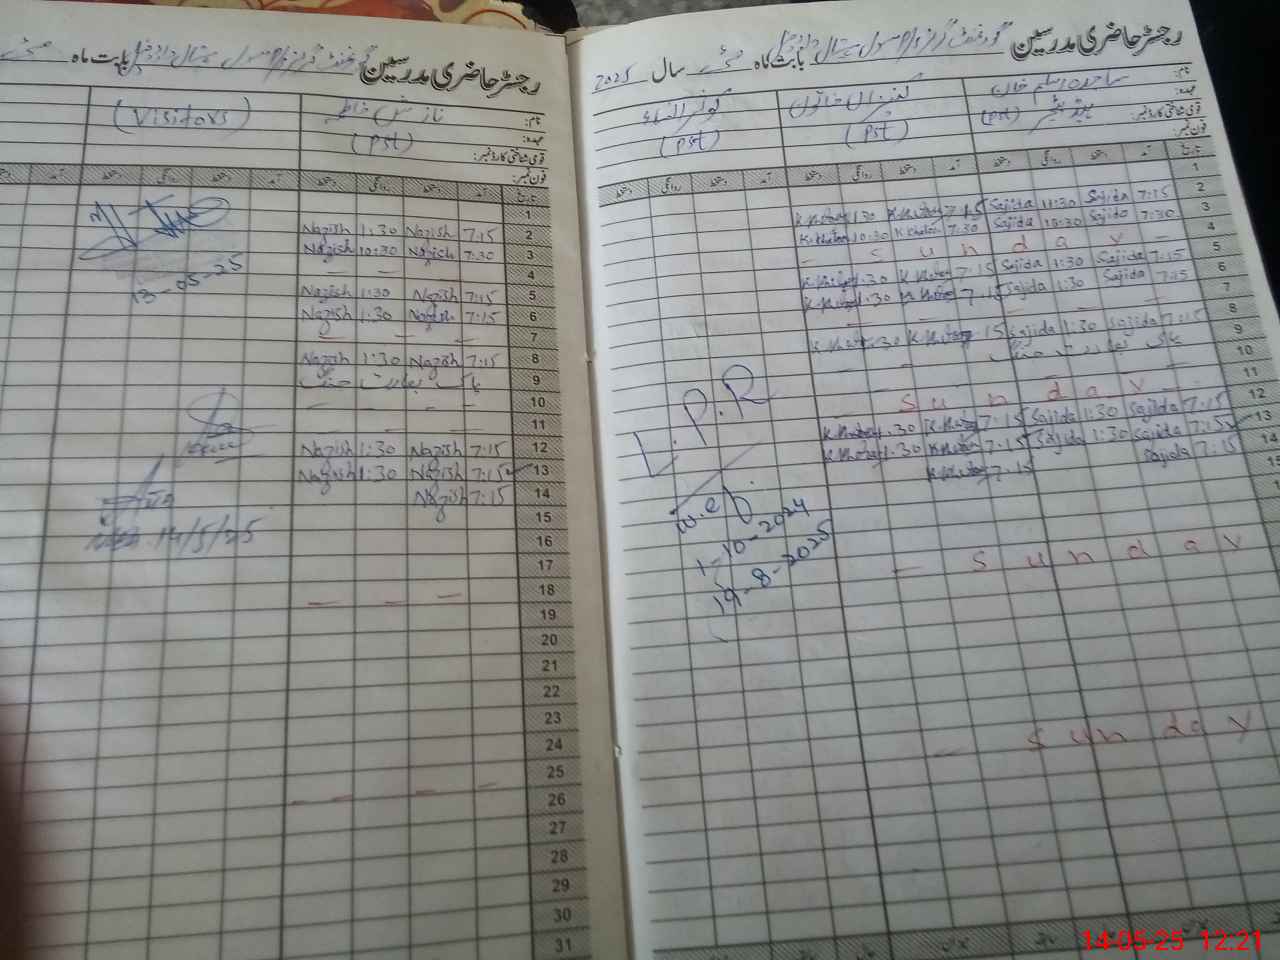 رجسٹر حاضری مدرسین گورنمنٹ گرلز پرائمری سکول بابت ماہ مئی سال 2025
نام:
عہدہ:
قومی شناختی کارڈ نمبر:
فون نمبر:
ساجدہ سلیم خان
ہیڈ ٹیچر (Pst)
کنیز خاتون
(Pst)
کوثر النساء
(Pst)
تاریخ آمد دستخط روانگی دستخط آمد دستخط روانگی دستخط آمد دستخط روانگی دستخط
1
2 7:15 Sajida 11:30 Sajida 7:15 K.Khatoon 1:30 K.Khatoon
3 7:30 Sajida 10:30 Sajida 7:30 K.Khatoon 10:30 K.Khatoon
4 Sunday
5 7:15 Sajida 1:30 Sajida 7:15 K.Khatoon 1:30 K.Khatoon
6 7:15 Sajida 1:30 Sajida 7:15 K.Khatoon 1:30 K.Khatoon
7
8 7:15 Sajida 1:30 Sajida 7:15 K.Khatoon 1:30 K.Khatoon
9 پاک بھارت جنگ
10
11 Sunday
12 7:15 Sajida 1:30 Sajida 7:15 K.Khatoon 1:30 K.Khatoon
13 7:15 Sajida 1:30 Sajida 7:15 K.Khatoon 1:30 K.Khatoon
14 7:15 Sajida 7:15 K.Khatoon
15
Sunday
Sunday
L.P.R
w.e.f.
1-10-2024
19-8-2025
رجسٹر حاضری مدرسین گورنمنٹ گرلز پرائمری سکول بابت ماہ مئی
نام:
عہدہ:
قومی شناختی کارڈ نمبر:
فون نمبر:
نازش
(Pst)
(Visitors)
تاریخ آمد دستخط روانگی دستخط آمد دستخط روانگی دستخط آمد
1
2 7:15 Nazish 1:30 Nazish
3 7:30 Nazish 10:30 Nazish
4
5 7:15 Nazish 1:30 Nazish
6 7:15 Nazish 1:30 Nazish
7
8 7:15 Nazish 1:30 Nazish
9 پاک بھارت جنگ
10
11
12 7:15 Nazish 1:30 Nazish
13 7:15 Nazish 1:30 Nazish
14 7:15 Nazish
15
16
17
18
19
20
21
22
23
24
25
26
27
28
29
30
31
13-05-25
14/5/25
14-05-25 12:21